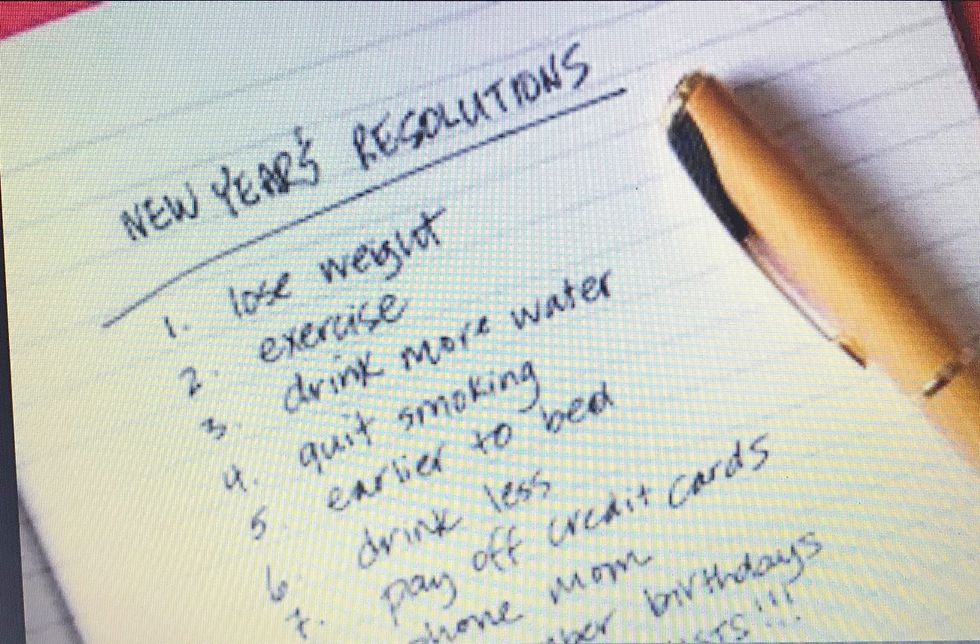 NEW YEAR'S RESOLUTIONS
1. lose weight
2. exercise
3. drink more water
4. quit smoking
5. earlier to bed
6. drink less
7. pay off credit cards
phone mom
birthdays